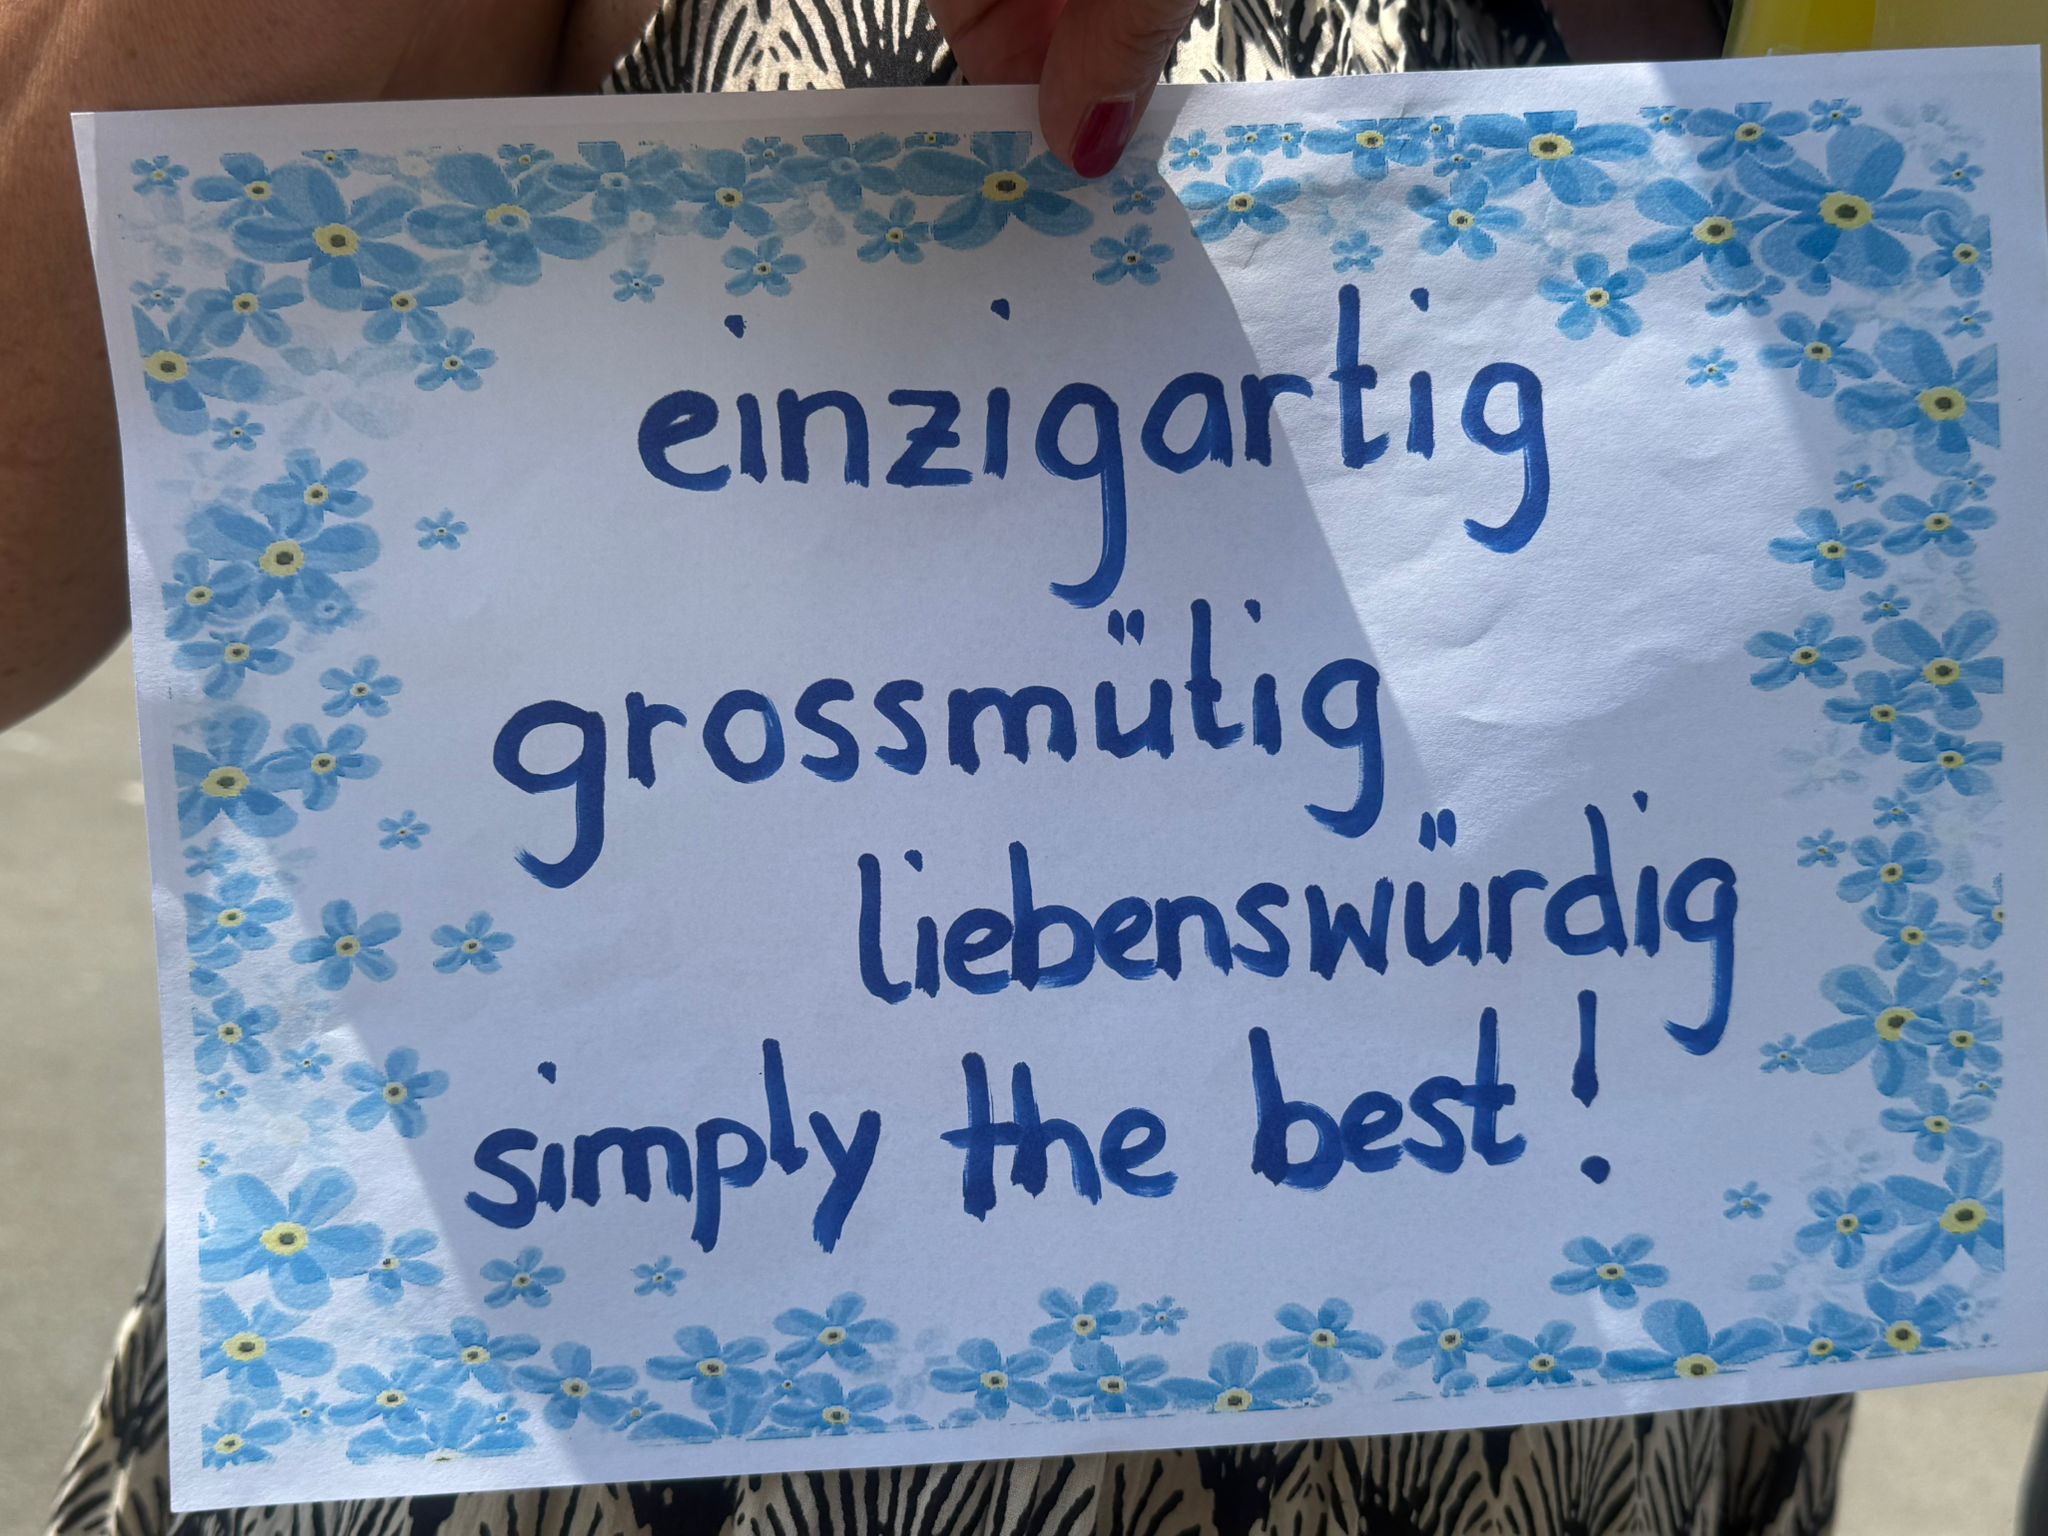 einzigartig
grossmütig
liebenswürdig
simply the best!